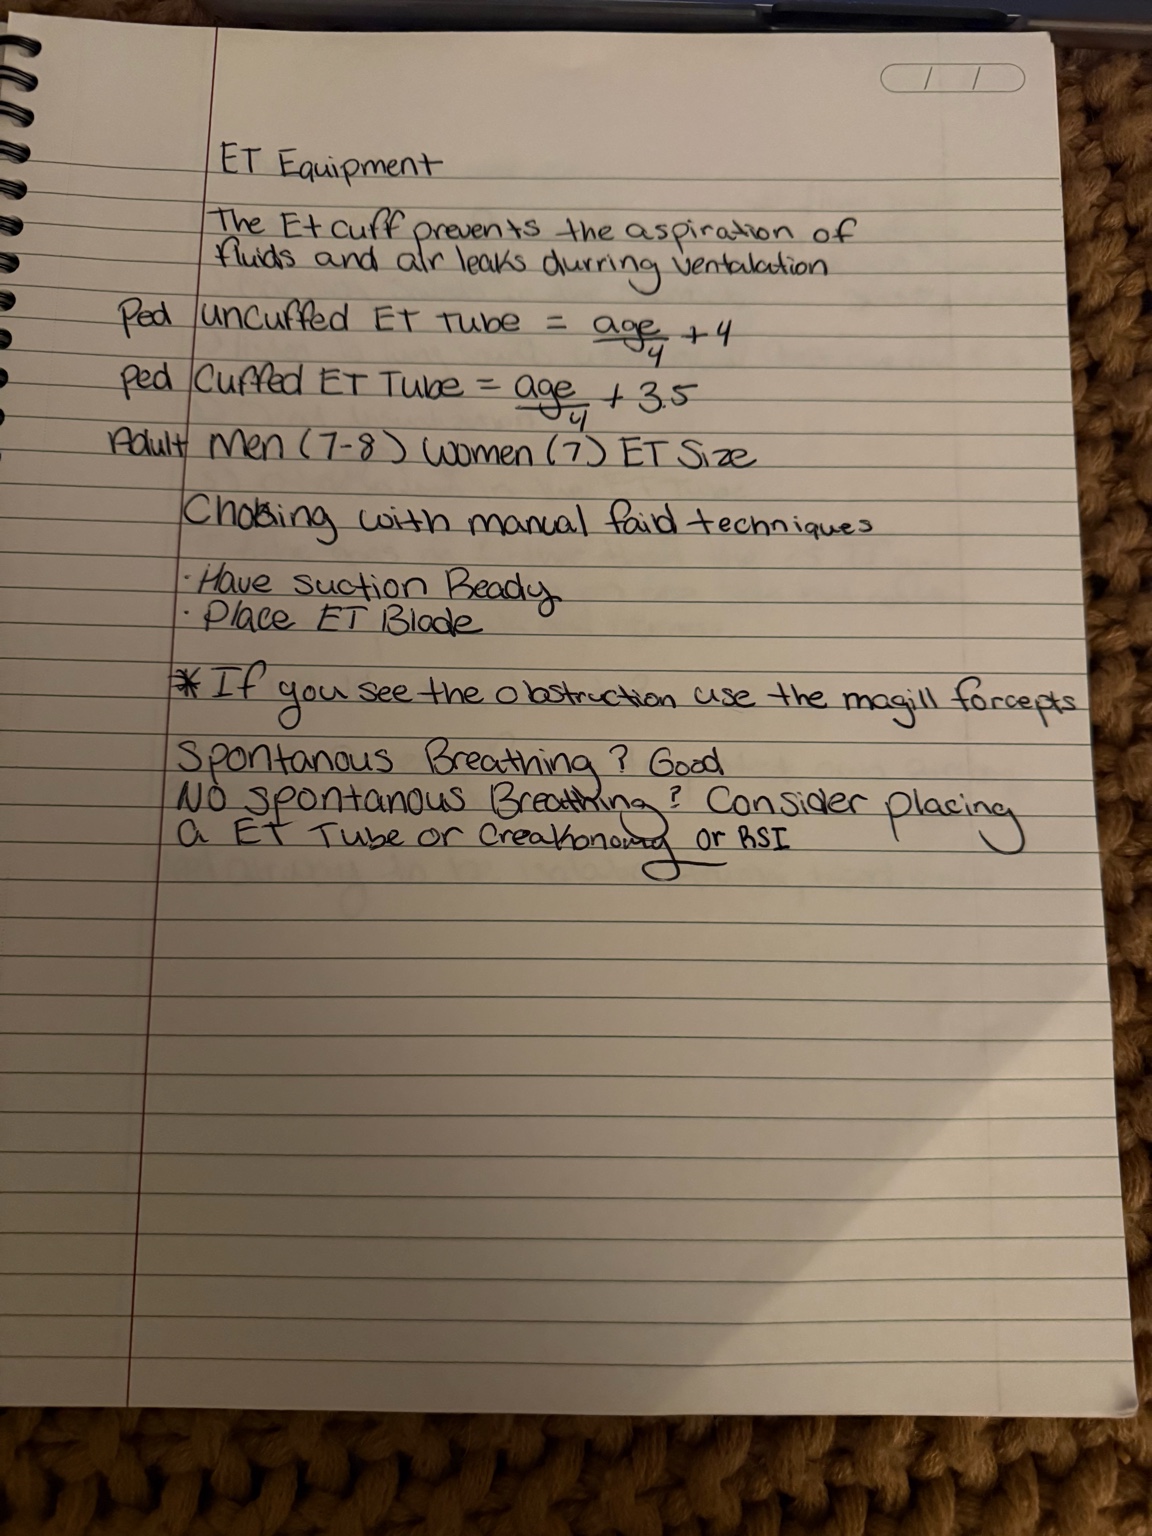 ET Equipment
The Et cuff prevents the aspiration of
fluids and air leaks durring ventalation
Ped uncuffed ET Tube = age/4 + 4
Ped Cuffed ET Tube = age/4 + 3.5
Adult Men (7-8) Women (7) ET Size
Choking with manual faid techniques
· Have suction Ready
· Place ET Blade
* If you see the obstruction use the magill forcepts
Spontanous Breathing? Good
No spontanous Breathing? Consider placing
a ET Tube or or RSI